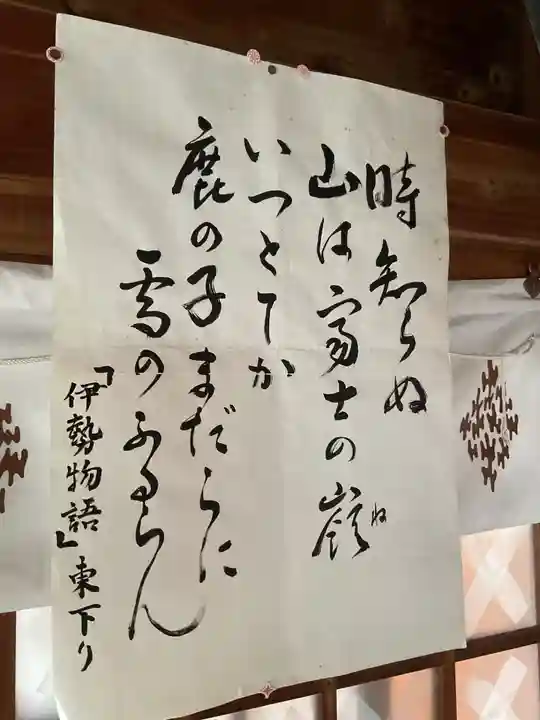 時知らぬ
山は富士の嶺
ね
いつとてか
鹿の子まだらに
雪のふるらん
「伊勢物語」東下り